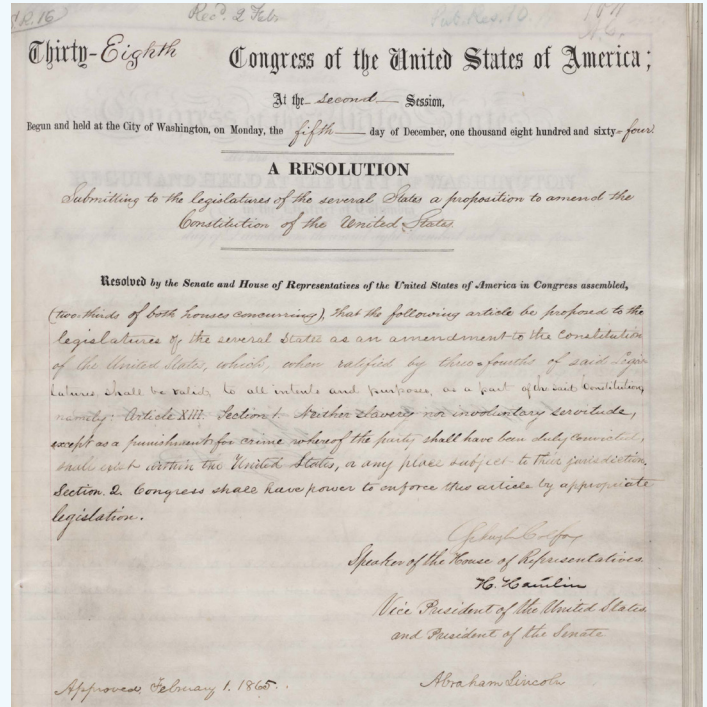 S.R. 16
Rec'd. 2 Feby
Pub. Res. 10
Thirty-Eighth Congress of the United States of America;
At the second Session,
Begun and held at the City of Washington, on Monday, the fifth day of December, one thousand eight hundred and sixty-four
A RESOLUTION
Submitting to the legislatures of the several States a proposition to amend the
Constitution of the United States.
Resolved by the Senate and House of Representatives of the United States of America in Congress assembled,
(two-thirds of both houses concurring), that the following article be proposed to the
legislatures of the several States as an amendment to the Constitution
of the United States, which, when ratified by three-fourths of said Legis-
latures shall be valid, to all intents and purposes, as a part of the said Constitution,
namely: Article XIII. Section 1. Neither slavery nor involuntary servitude,
except as a punishment for crime whereof the party shall have been duly convicted,
shall exist within the United States, or any place subject to their jurisdiction.
Section 2. Congress shall have power to enforce this article by appropriate
legislation.
Schuyler Colfax
Speaker of the House of Representatives.
H. Hamlin
Vice President of the United States
and President of the Senate
Approved, February 1. 1865. Abraham Lincoln